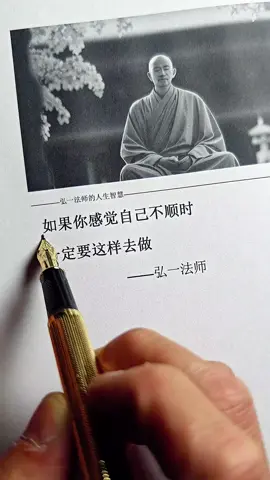 弘一法师的人生智慧
如果你感觉自己不顺时
一定要这样去做
——弘一法师